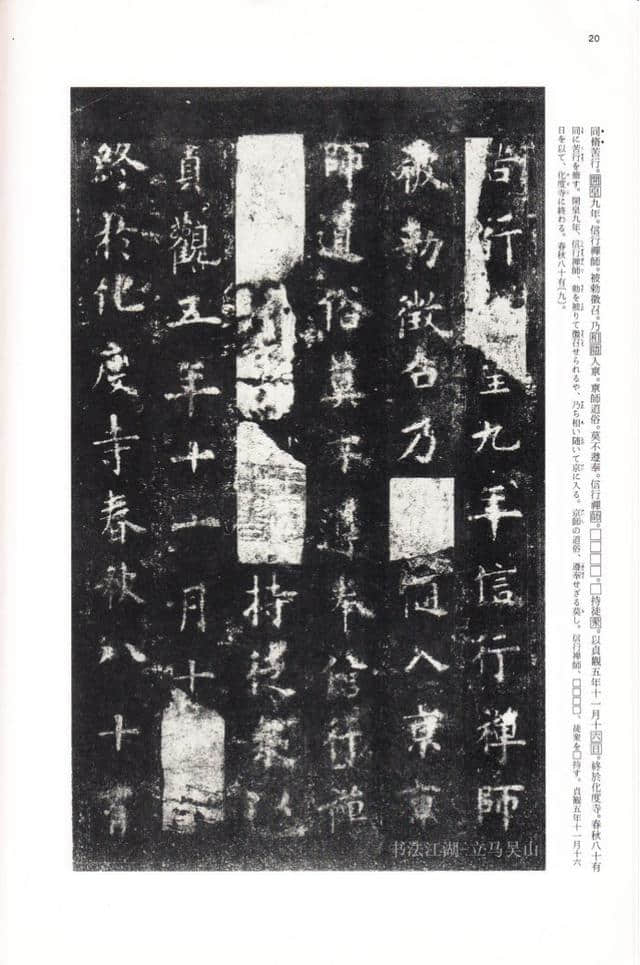 20
同脩苦行。開皇九年。信行禪師。被勅徵召。乃相隨入京。京師道俗。莫不遵奉。信行禪師。□□□□。□持徒衆。以貞觀五年十一月十六日。終於化度寺。春秋八十有
同に苦行を脩す。開皇九年、信行禪師、勅を被りて徵召せられるや、乃ち相い随いて京に入る。京師の道俗、遵奉せざる莫し。信行禪師、□□□□、徒衆を□持す。貞觀五年十一月十六
日を以て、化度寺に終わる。春秋八十有(九)。
苦行 皇九年信行禪師
被勅徵召乃 随入京京
師道俗莫不遵奉信行禪
持徒衆以
貞觀五年十一月十 日
終於化度寺春秋八十有
书法江湖-立马吴山